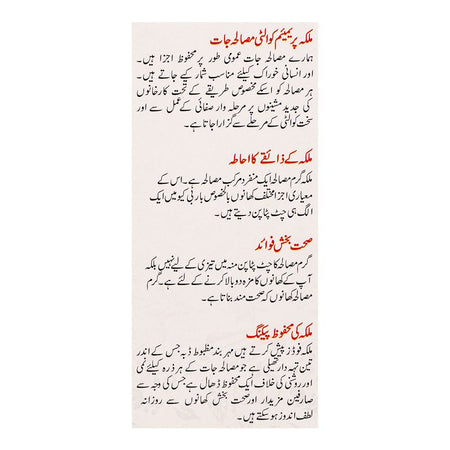 ملکہ پریمیئم کوالٹی مصالحہ جات
ہمارے مصالحہ جات عمومی طور پر محفوظ اجزا ہیں۔
اور انسانی خوراک کیلئے مناسب شمار کیے جاتے ہیں۔
ہر مصالحہ کو اسکے مخصوص طریقے کے تحت کارخانوں
کی جدید مشینوں پر مرحلہ وار صفائی کے عمل سے اور
سخت کوالٹی کے مرحلے سے گزارا جاتا ہے۔
ملکہ کے ذائقے کا احاطہ
ملکہ گرم مصالحہ ایک منفرد مرکب مصالحہ ہے۔ اس کے
معیاری اجزا مختلف کھانوں بالخصوص باربی کیو میں ایک
الگ ہی چٹ پٹا پن دیتے ہیں۔
صحت بخش فوائد
گرم مصالحہ کا چٹ پٹا پن منہ میں تیزی کے لیے نہیں بلکہ
آپ کے کھانوں کا مزہ دوبالا کرنے کے لئے ہے۔ گرم
مصالحہ کھانوں کہ صحت مند بناتا ہے۔
ملکہ کی محفوظ پیکنگ
ملکہ فوڈز پیش کرتے ہیں مہر بند مظبوط ڈبہ جس کے اندر
تین تہہ دار تھیلی ہے جو مصالحہ جات کے ہر ذرہ کیلئے نمی
اور روشنی کی خلاف ایک محفوظ ڈھال ہے جس کی وجہ سے
صارفین مزیدار اور صحت بخش کھانوں سے روزانہ
لطف اندوز ہو سکتے ہیں۔